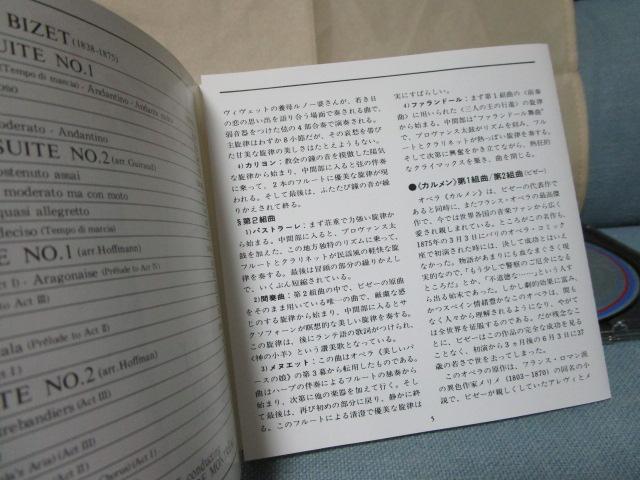 BIZET (1838-1875)
SUITE NO.1
(Tempo di marcia) - Andantino - Andantino
Moderato - Andantino
SUITE NO.2 (arr.Guiraud)
sostenuto assai
moderato ma con moto
quasi allegretto
deciso (Tempo di marcia)
NO.1 (arr.Hoffmann)
b - Aragonaise (Prélude to Act IV)
Act III)
(Prélude to Act II)
Act I)
NO.2 (arr.Hoffman)
(Act III)
Aria) (Act III)
(Act II)
Chorus) (Act I)
conducting
DE MONT
ヴィヴェットの養母ルノー婆さんが、若き日
の恋の思い出を語り合う場面で奏される曲で、
弱音器をつけた弦の4部合奏で演奏される。
主旋律はわずか8小節だが、その哀愁を帯び
た甘美な旋律の美しさはたとえようもない。
4)カリヨン:教会の鐘の音を模倣した陽気
な旋律から始まり、中間部に入ると弦の伴奏
に乗って、2本のフルートに優美な旋律が現
われる。そして最後は、ふたたび鐘の音が繰
りかえされて終る。
§第2組曲
1)パストラーレ:まず荘重で力強い旋律か
ら始まる。中間部に入ると、プロヴァンス太
鼓を加えた、この地方独特のリズムに乗って、
フルートとクラリネットが民謡風の軽快な旋
律を奏する。最後は冒頭の部分の繰りかえし
で、いくぶん短縮されている。
2)間奏曲:第2組曲の中で、ビゼーの原曲
をそのまま用いている唯一の曲で、厳粛な感
じのする旋律から始まり、中間部に入るとサ
クソフォーンが瞑想的な美しい旋律を奏する。
この旋律は、後にラテン語の歌詞がつけられ、
《神の小羊》という讃美歌となっている。
3)メヌエット:この曲はオペラ《美しいパ
ースの娘》の第3幕から転用したものである。
曲はハープの伴奏によるフルートの独奏から
始まり、次第に他の楽器を加えて行く。そし
て最後は、再び初めの部分に戻り、静かに終
る。このフルートによる清澄で優美な旋律は
実にすばらしい。
4)ファランドール:まず第1組曲の《前奏
曲》に用いられた《三人の王の行進》の旋律
から始まる。中間部は“ファランドール舞曲”
で、プロヴァンス太鼓がリズムを刻み、フル
ートとクラリネットが熱っぽい旋律を奏する。
そして次第に興奮をかき立てながら、熱狂的
なクライマックスを築き、曲を閉じる。
●《カルメン》第1組曲/第2組曲(ビゼー)
オペラ《カルメン》は、ビゼーの代表作で
あると同時に、またフランス・オペラの最高傑
作で、今では世界各国の音楽ファンから広く
愛され親しまれている。ところがこの名作も、
1875年の3月3日にパリのオペラ・コミック
座で初演された時には、決して成功とはいえ
なかった。物語があまりにも血なまぐさく現
実的なので、「もう少しで警察のご厄介になる
ところだ」とか、「不道徳な……」という人す
ら出る始末であった。しかし劇的効果に富み、
かつスペイン情緒豊かなこのオペラは、間も
なく人々から理解されるようになり、やがて
は全世界を征服するのである。だが残念なこ
とに、ビゼーはこの作品の完全な成功を見る
ことなく、初演から3ヵ月後の6月3日に37
歳の若さで世を去ってしまった。
このオペラの原作は、フランス・ロマン派
の異色作家メリメ(1803–1870)の同名の小
説で、ビゼーが親しくしていたアレヴィとメ
5